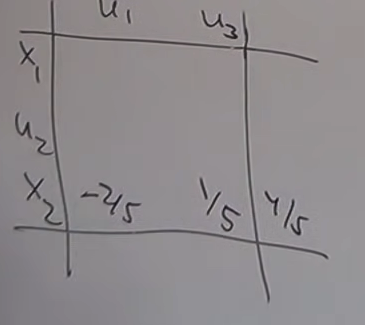 u₁ u₃
x₁
u₂
x₂ -2/5 1/5 4/5